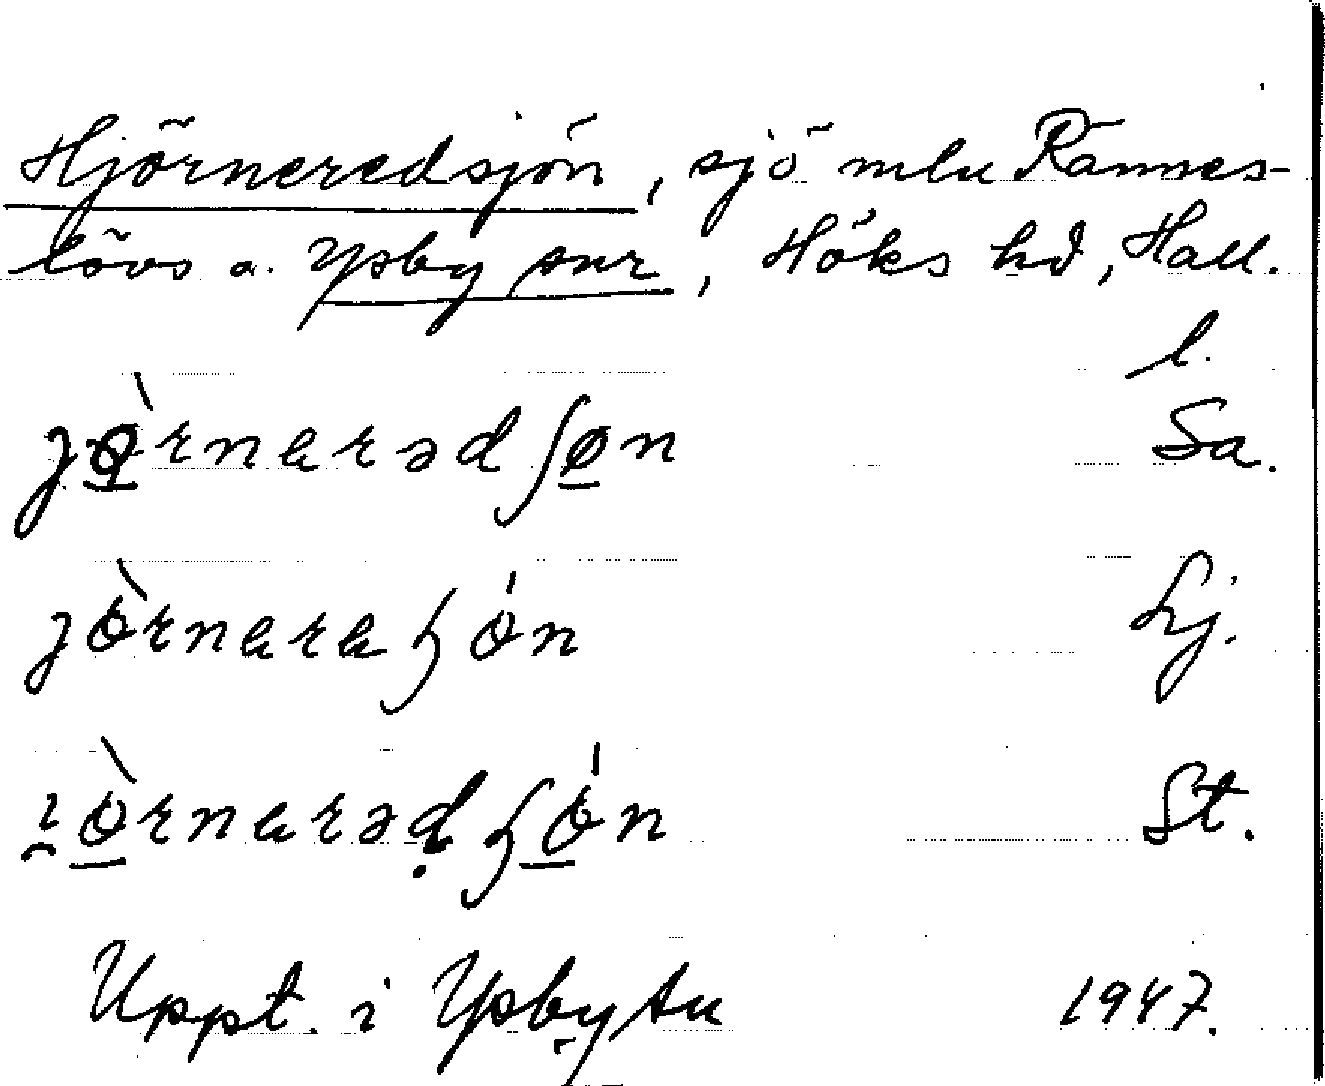 Hjörneredsjön, sjö mlu Rännes-
lövs o. Ysby snr, Höks hd, Hall.
l.
jø̀rnarədʃøn Sa.
jòrnaraʃón Lj.
ı̯òrnarəḍʃón St.
Uppt. i Ysby sn 1947.